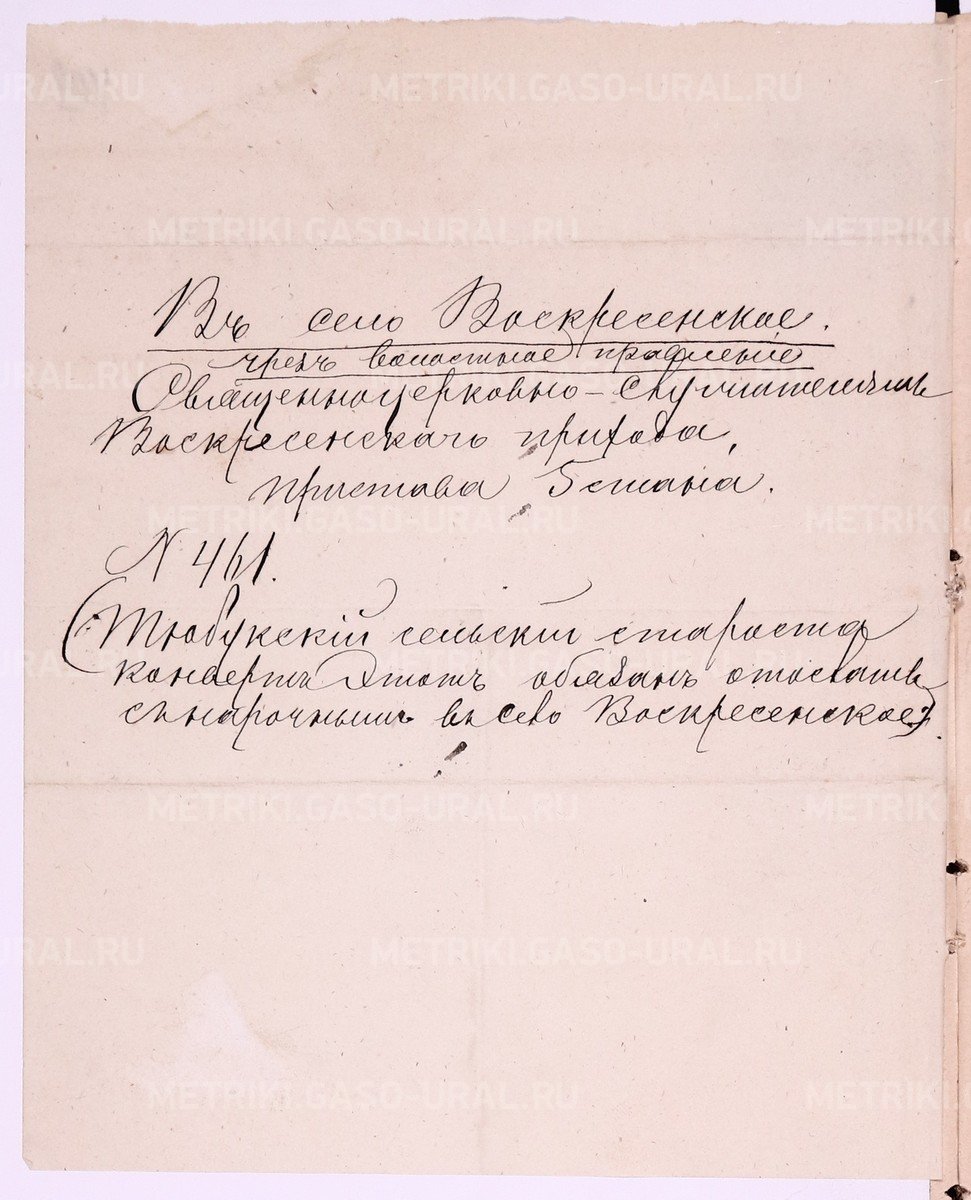 Въ село Воскресенское.
чрезъ волостное правленіе
Священноцерковно-служителямъ
Воскресенскаго прихода,
пристава 5 стана.
N 461.
(Тюбукскій сельскій староста
конвертъ этотъ обязанъ отослать
съ нарочнымъ въ село Воскресенское).
METRIKI.GASO-URAL.RU